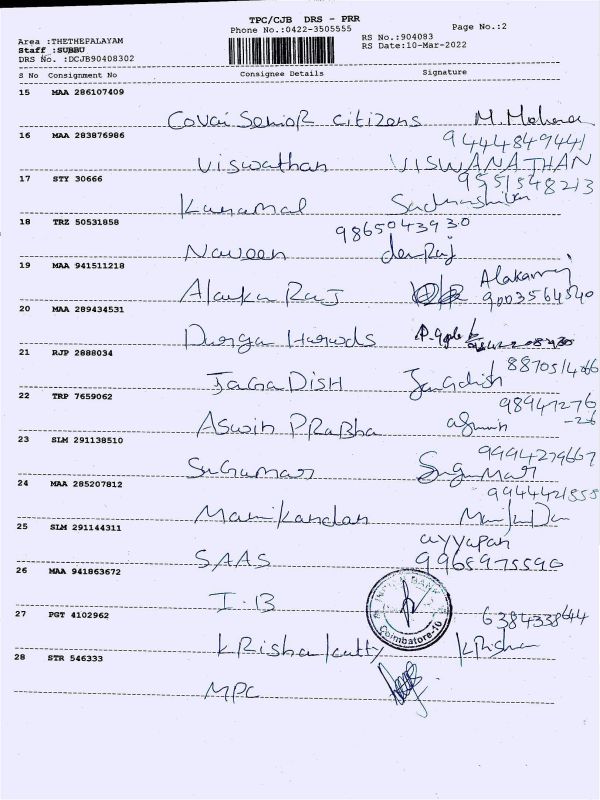 TPC/CJB DRS - PRR
Phone No.:0422-3505555
Page No.:2
Area :THETHEPALAYAM
RS No.:904083
Staff :SUBBU
RS Date:10-Mar-2022
DRS No. :DCJB90408302
S No Consignment No Consignee Details Signature
15 MAA 286107409
Covai Senior citizens
16 MAA 283876986
9444849441
Viswathan VISWANATHAN
17 STY 30666
9551548213
18 TRZ 50531858
9865043930
Naveen devRaj
19 MAA 941511218
Alaka Raj
9003564540
20 MAA 289434531
Durga
21 RJP 2888034
JaGaDISH Jagdish
22 TRP 7659062
98947276
-26
Aswin PRaBha
23 SLM 291138510
9994279667
Sugumar Sugumar
24 MAA 285207812
Manikandan
25 SLM 291144311
ayyapan
SAAS 9965975590
26 MAA 941863672
I.B
Coimbatore-10
27 PGT 4102962
6384338644
KRishankutty KRishan
28 STR 546333
MPC